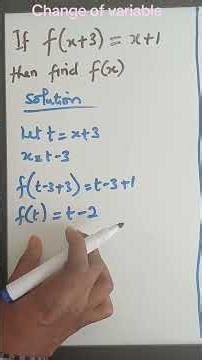 Change of variable
If f(x+3) = x+1
then find f(x)
Solution
Let t = x+3
x = t-3
f(t-3+3) = t-3+1
f(t) = t-2